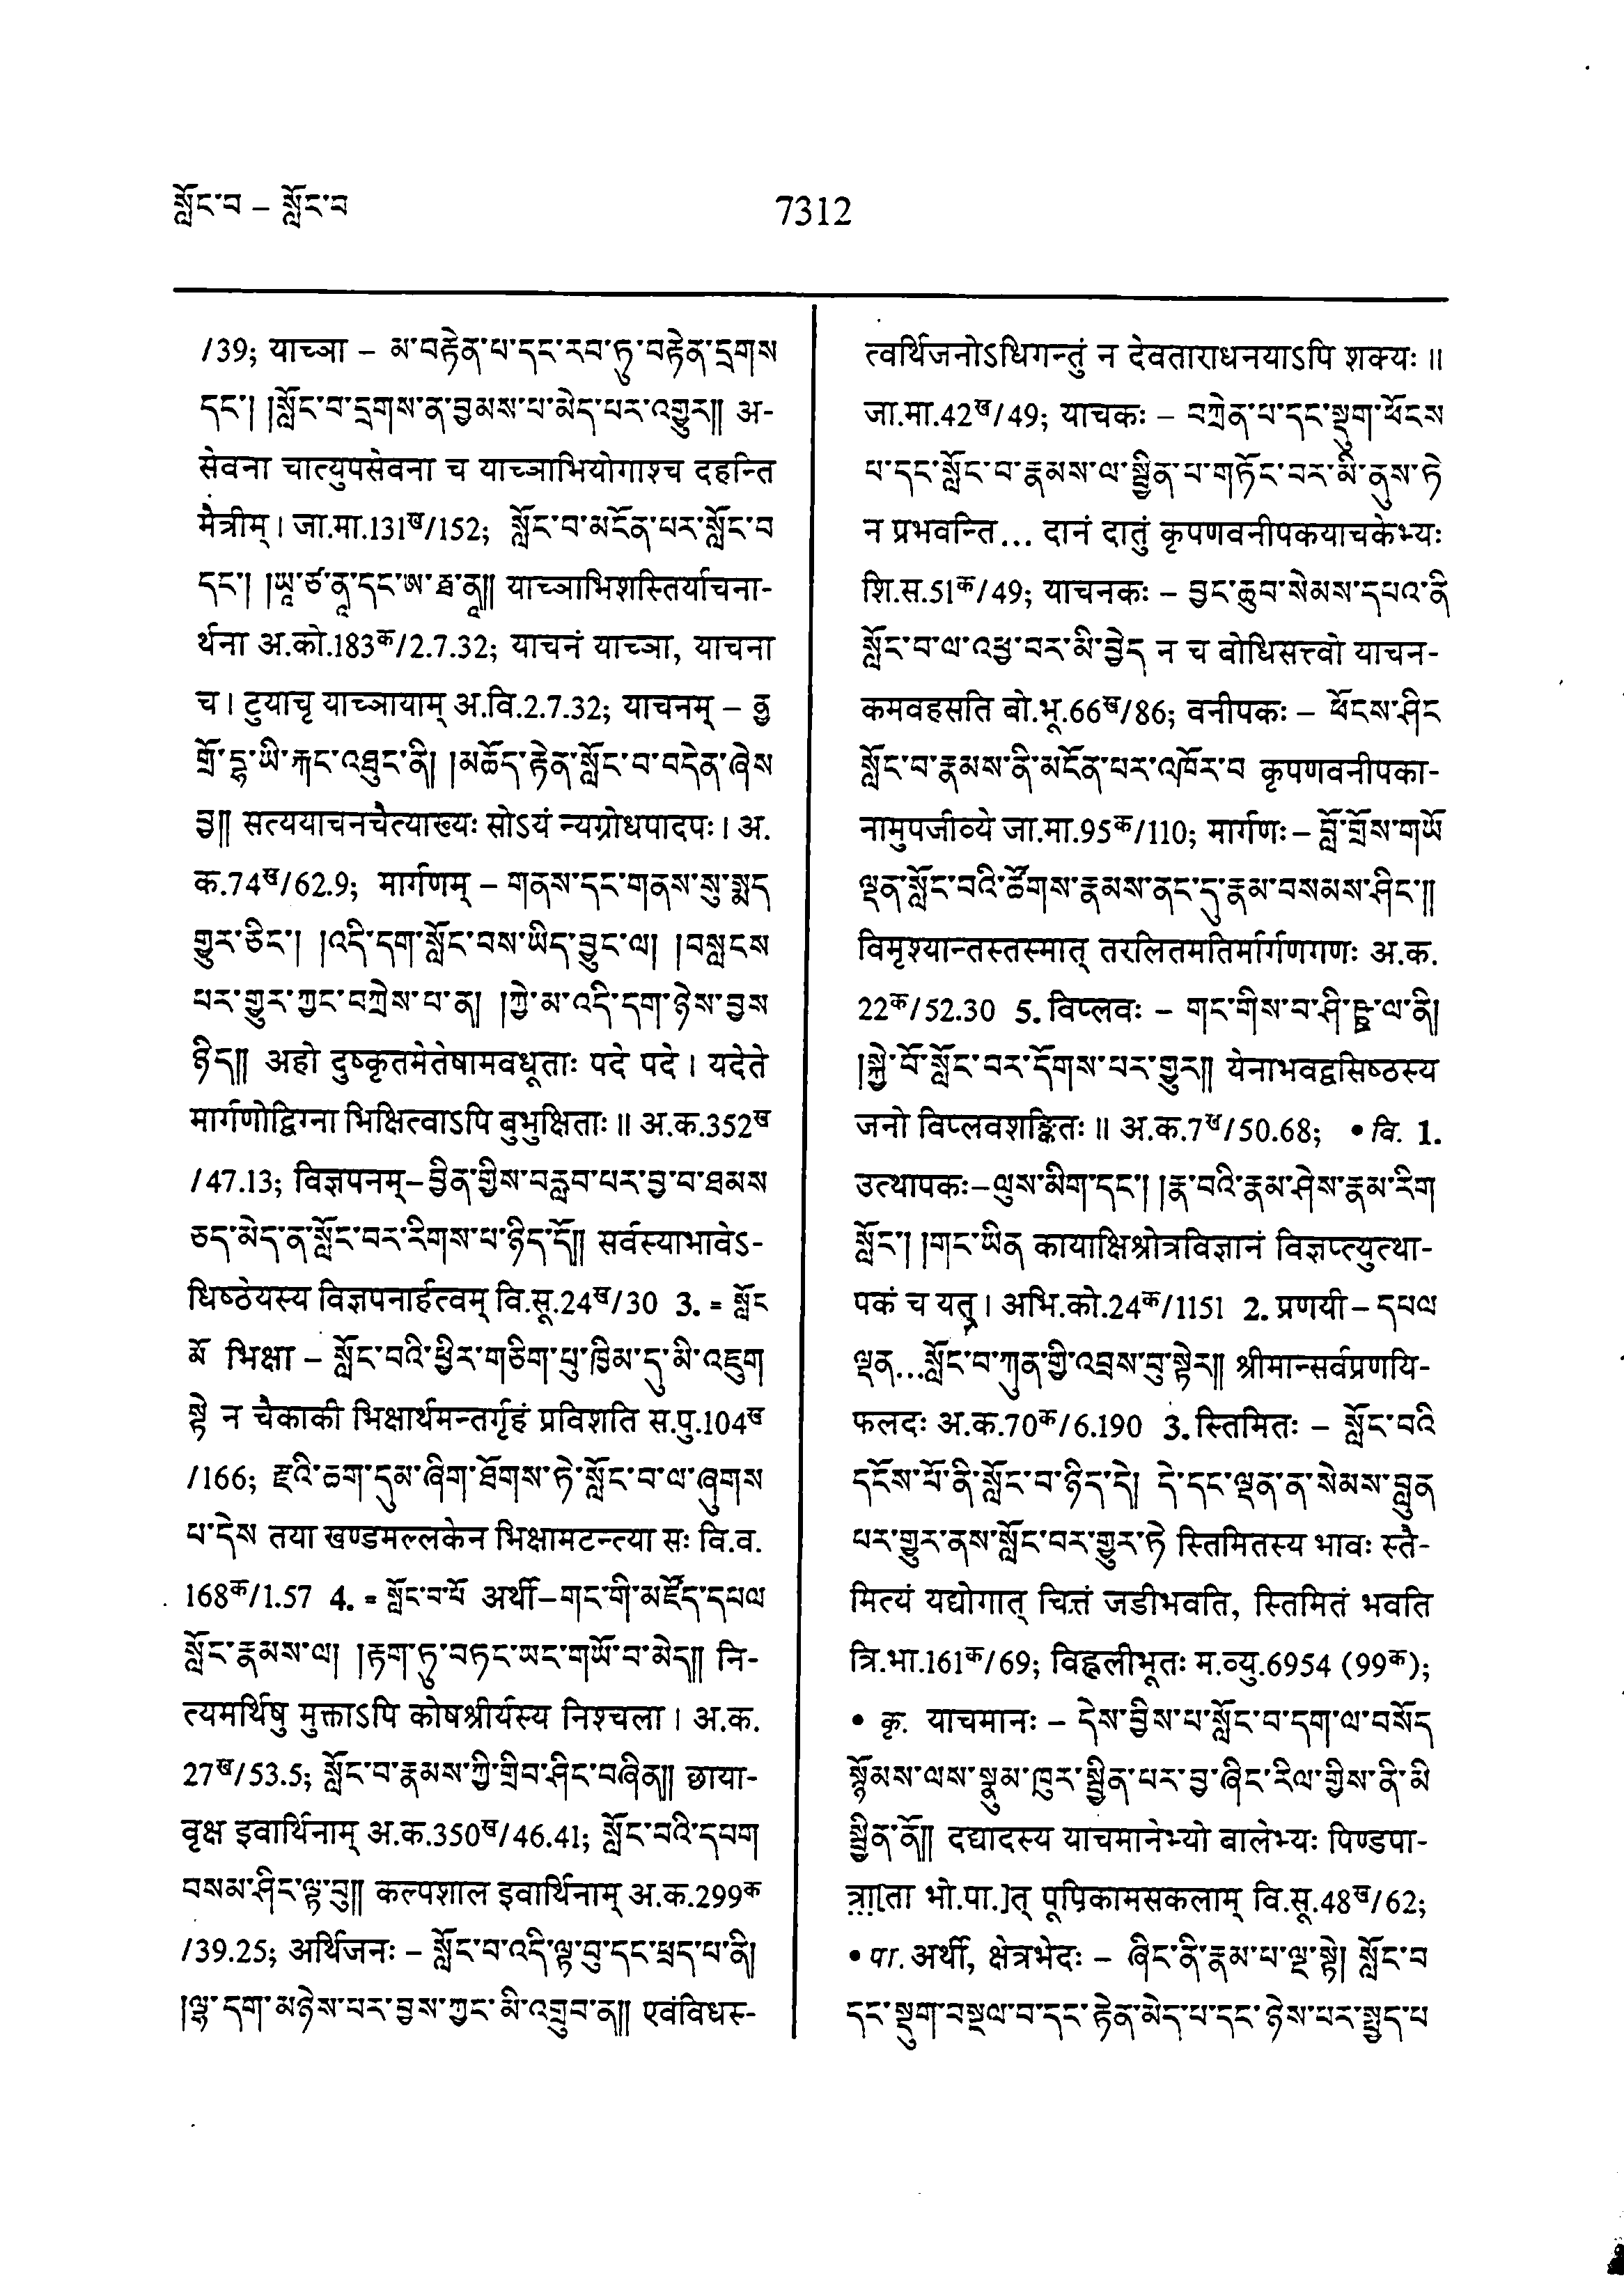 སློང་བ – སློང་བ
7312
/39; याच्ञा – མ་བརྟེན་པ་དང་རབ་ཏུ་བརྟེན་དྲགས
དང་། །སློང་བ་དྲགས་ན་བྱམས་པ་མེད་པར་འགྱུར།། अ-
सेवना चात्युपसेवना च याच्ञाभियोगाश्च दहन्ति
मैत्रीम् । जा.मा.131ख/152; སློང་བ་མངོན་པར་སློང་བ
དང་། །ཡཱ་ཙ་ནཱ་དང་ཨ་རྠ་ནཱ།། याच्ञाभिशस्तिर्याचना-
र्थना अ.को.183क/2.7.32; याचनं याच्ञा, याचना
च । टुयाचृ याच्ञायाम् अ.वि.2.7.32; याचनम् – ནྱ
གྲོ་དྷ་ཡི་རྐང་འཐུང་ནི། །མཆོད་རྟེན་སློང་བ་བདེན་ཞེས
བྱ།། सत्ययाचनचैत्याख्यः सोऽयं न्यग्रोधपादपः । अ.
क.74ख/62.9; मार्गणम् – གནས་དང་གནས་སུ་སྨད
གྱུར་ཅིང་། །འདི་དག་སློང་བས་ཡིད་བྱུང་ལ། །བསླངས
པར་གྱུར་ཀྱང་བཀྲེས་པ་ན། །ཀྱེ་མ་འདི་དག་ཉེས་བྱས
ཉིད།། अहो दुष्कृतमेतेषामवधूताः पदे पदे । यदेते
मार्गणोद्विग्ना भिक्षित्वाऽपि बुभुक्षिताः ॥ अ.क.352ख
/47.13; विज्ञपनम्–བྱིན་གྱིས་བརླབ་པར་བྱ་བ་ཐམས
ཅད་མེད་ན་སློང་བར་རིགས་པ་ཉིད་དོ།། सर्वस्याभावेऽ-
धिष्ठेयस्य विज्ञपनार्हत्वम् वि.सू.24ख/30 3. = སློང
མོ भिक्षा – སློང་བའི་ཕྱིར་གཅིག་པུ་ཁྱིམ་དུ་མི་འཇུག
སྟེ न चैकाकी भिक्षार्थमन्तर्गृहं प्रविशति स.पु.104ख
/166; རྫའི་ཆག་དུམ་ཞིག་ཐོགས་ཏེ་སློང་བ་ལ་ཞུགས
པ་དེས तया खण्डमल्लकेन भिक्षामटन्त्या सः वि.व.
168क/1.57 4. = སློང་བ་པོ अर्थी–གང་གི་མཛོད་དཔལ
སློང་རྣམས་ལ། །རྟག་ཏུ་བཏང་ཡང་གཡོ་བ་མེད།། नि-
त्यमर्थिषु मुक्ताऽपि कोषश्रीर्यस्य निश्चला । अ.क.
27ख/53.5; སློང་བ་རྣམས་ཀྱི་གྲིབ་ཤིང་བཞིན།། छाया-
वृक्ष इवार्थिनाम् अ.क.350ख/46.41; སློང་བའི་དཔག
བསམ་ཤིང་ལྟ་བུ།། कल्पशाल इवार्थिनाम् अ.क.299क
/39.25; अर्थिजनः – སློང་བ་འདི་ལྟ་བུ་དང་ཕྲད་པ་ནི།
།ལྷ་དག་མཉེས་པར་བྱས་ཀྱང་མི་འགྲུབ་ན།། एवंविधस्-
त्वर्थिजनोऽधिगन्तुं न देवताराधनयाऽपि शक्यः ॥
जा.मा.42ख/49; याचकः – བཀྲེན་པ་དང་སྡུག་ཕོངས
པ་དང་སློང་བ་རྣམས་ལ་སྦྱིན་པ་གཏོང་བར་མི་ནུས་ཏེ
न प्रभवन्ति... दानं दातुं कृपणवनीपकयाचकेभ्यः
शि.स.51क/49; याचनकः – བྱང་ཆུབ་སེམས་དཔའ་ནི
སློང་བ་ལ་འཕྱ་བར་མི་བྱེད न च बोधिसत्त्वो याचन-
कमवहसति बो.भू.66ख/86; वनीपकः – ཕོངས་ཤིང
སློང་བ་རྣམས་ནི་མངོན་པར་འཁོར་བ कृपणवनीपका-
नामुपजीव्ये जा.मा.95क/110; मार्गणः – བློ་གྲོས་གཡོ
ལྡན་སློང་བའི་ཚོགས་རྣམས་ནང་དུ་རྣམ་བསམས་ཤིང་།།
विमृश्यान्तस्तस्मात् तरलितमतिर्मार्गणगणः अ.क.
22क/52.30 5. विप्लवः – གང་གིས་བ་ཤི་ཥྛ་ལ་ནི།
།སྐྱེ་བོ་སློང་བར་དོགས་པར་གྱུར།། येनाभवद्वसिष्ठस्य
जनो विप्लवशङ्कितः ॥ अ.क.7ख/50.68; • वि. 1.
उत्थापकः–ལུས་མིག་དང་། །རྣ་བའི་རྣམ་ཤེས་རྣམ་རིག
སློང་། །གང་ཡིན कायाक्षिश्रोत्रविज्ञानं विज्ञप्त्युत्था-
पकं च यत् । अभि.को.24क/1151 2. प्रणयी – དཔལ
ལྡན...སློང་བ་ཀུན་གྱི་འབྲས་བུ་སྟེར།། श्रीमान्सर्वप्रणयि-
फलदः अ.क.70क/6.190 3. स्तिमितः – སློང་བའི
དངོས་པོ་ནི་སློང་བ་ཉིད་དེ། དེ་དང་ལྡན་ན་སེམས་བླུན
པར་གྱུར་ནས་སློང་བར་གྱུར་ཏེ स्तिमितस्य भावः स्तै-
मित्यं यद्योगात् चित्तं जडीभवति, स्तिमितं भवति
त्रि.भा.161क/69; विह्वलीभूतः म.व्यु.6954 (99क);
• कृ. याचमानः – དེས་བྱིས་པ་སློང་བ་དག་ལ་བསོད
སྙོམས་ལས་སྣུམ་ཁུར་སྦྱིན་པར་བྱ་ཞིང་རིལ་གྱིས་ནི་མི
སྦྱིན་ནོ།། दद्यादस्य याचमानेभ्यो बालेभ्यः पिण्डपा-
त्रा[ता भो.पा.]त् पूपिकामसकलाम् वि.सू.48ख/62;
• पा. अर्थी, क्षेत्रभेदः – ཞིང་ནི་རྣམ་པ་ལྔ་སྟེ། སློང་བ
དང་སྡུག་བསྔལ་བ་དང་རྟེན་མེད་པ་དང་ཉེས་པར་སྤྱད་པ